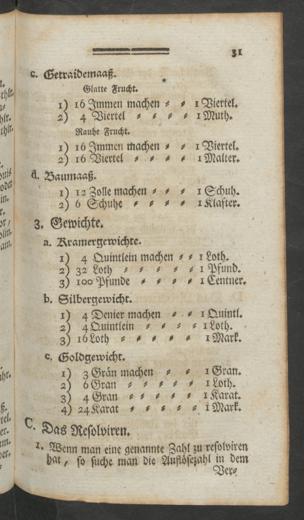 31
c. Getraidemaaß.
Glatte Frucht.
1) 16 Immen machen ⸗ ⸗ 1 Viertel.
2) 4 Viertel ⸗ ⸗ ⸗ ⸗ 1 Muth.
Rauhe Frucht.
1) 16 Immen machen ⸗ ⸗ 1 Viertel.
2) 16 Viertel ⸗ ⸗ ⸗ ⸗ 1 Malter.
d. Baumaaß.
1) 12 Zolle machen ⸗ ⸗ ⸗ 1 Schuh.
2) 6 Schuhe ⸗ ⸗ ⸗ ⸗ 1 Klafter.
3. Gewichte.
a. Kramergewichte.
1) 4 Quintlein machen ⸗ ⸗ 1 Loth.
2) 32 Loth ⸗ ⸗ ⸗ ⸗ ⸗ 1 Pfund.
3) 100 Pfunde ⸗ ⸗ ⸗ ⸗ 1 Centner.
b. Silbergewicht.
1) 4 Denier machen ⸗ ⸗ 1 Quintl.
2) 4 Quintlein ⸗ ⸗ ⸗ ⸗ 1 Loth.
3) 16 Loth ⸗ ⸗ ⸗ ⸗ ⸗ 1 Mark.
c. Goldgewicht.
1) 3 Grän machen ⸗ ⸗ 1 Gran.
2) 6 Gran ⸗ ⸗ ⸗ ⸗ 1 Loth.
3) 4 Gran ⸗ ⸗ ⸗ ⸗ ⸗ 1 Karat.
4) 24 Karat ⸗ ⸗ ⸗ ⸗ ⸗ 1 Mark.
C. Das Resolviren.
1. Wenn man eine genannte Zahl zu resolviren
hat, so suche man die Auflösezahl in dem
Ver⸗